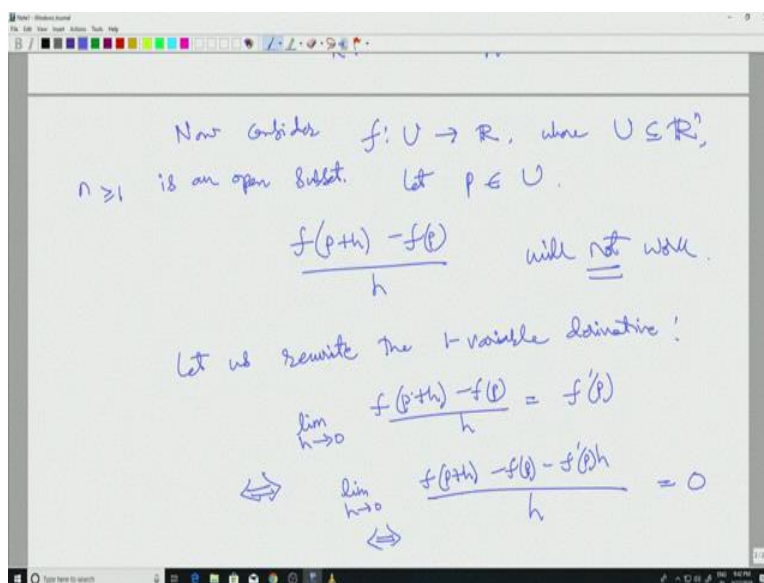 Note1 - Windows Journal
File Edit View Insert Actions Tools Help
Now consider f: U → ℝ, where U ⊆ ℝⁿ,
n ≥ 1 is an open subset. Let p ∈ U.
f(p+h) - f(p)
h
will not work.
Let us rewrite the 1-variable derivative:
lim h→0 f(p+h) - f(p) / h = f'(p)
⇔ lim h→0 f(p+h) - f(p) - f'(p)h / h = 0
⇔
Type here to search